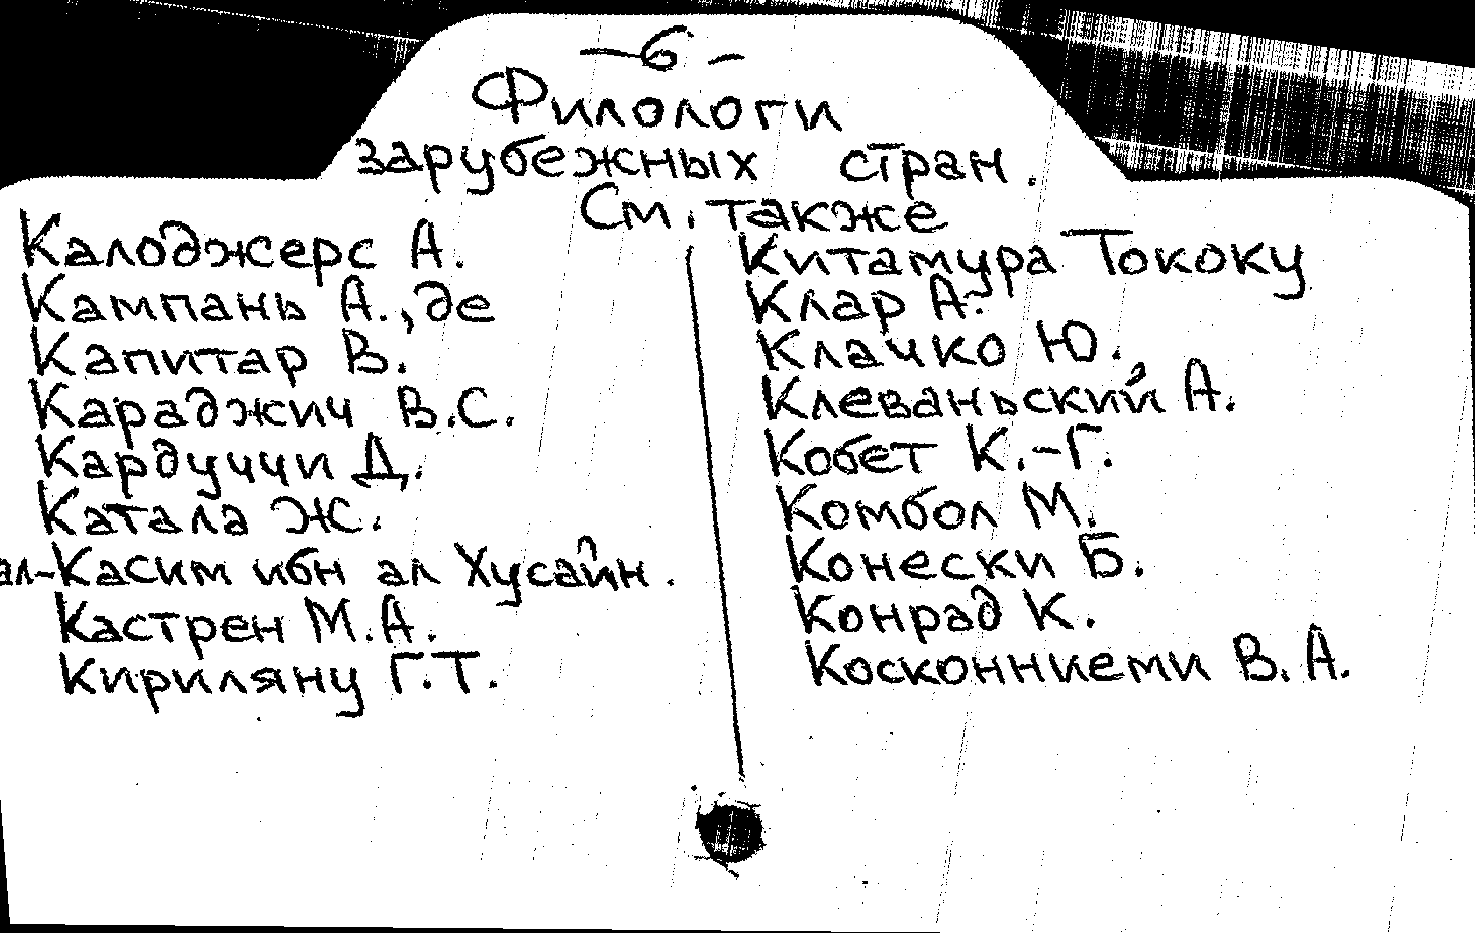 — 6 —
Филологи
зарубежных стран.
См. также
Калоджерс А.
Кампань А., де
Капитар В.
Караджич В.С.
Кардуччи Д.
Катала Ж.
ал-Касим ибн ал Хусайн.
Кастрен М.А.
Кириляну Г.Т.
Китамура Тококу
Клар А.
Клачко Ю.
Клеваньский А.
Кобет К.-Г.
Комбол М.
Конески Б.
Конрад К.
Косконниеми В.А.